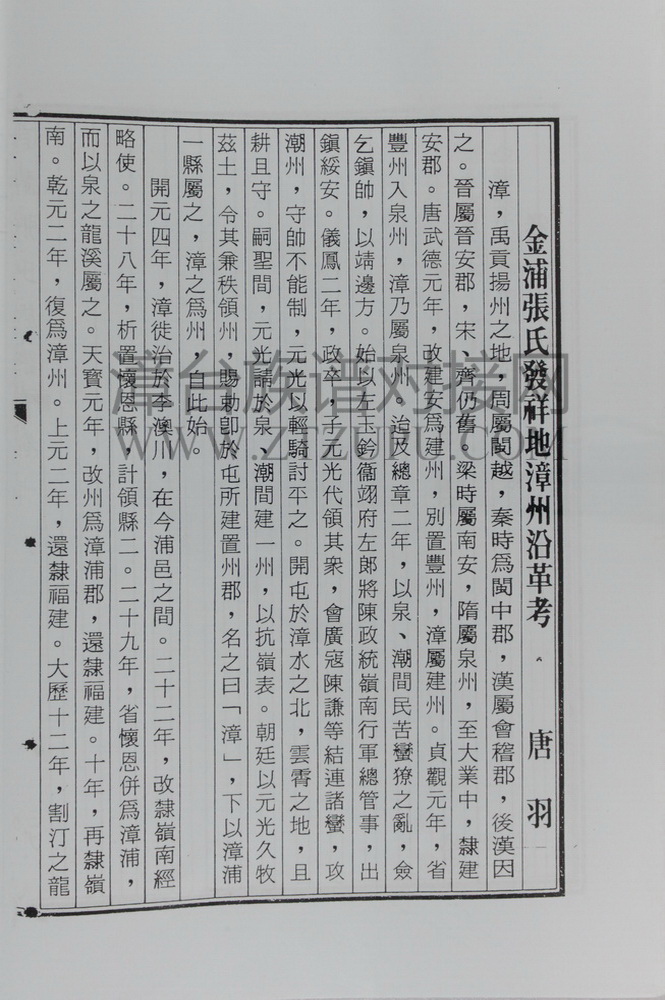 金浦張氏發祥地漳州沿革考
唐羽
漳，禹貢揚州之地，周屬閩越，秦時爲閩中郡，漢屬會稽郡，後漢因
之。晉屬晉安郡，宋、齊仍舊。梁時屬南安，隋屬泉州，至大業中，隸建
安郡。唐武德元年，改建安爲建州，別置豐州，漳屬建州。貞觀元年，省
豐州入泉州，漳乃屬泉州。迨及總章二年，以泉、潮間民苦蠻獠之亂，僉
乞鎭帥，以靖邊方。始以左玉鈐衞翊府左郎將陳政統嶺南行軍總管事，出
鎭綏安。儀鳳二年，政卒，子元光代領其衆，會廣寇陳謙等結連諸蠻，攻
潮州，守帥不能制，元光以輕騎討平之。開屯於漳水之北，雲霄之地，且
耕且守。嗣聖間，元光請於泉、潮間建一州，以抗嶺表。朝廷以元光久牧
茲土，令其兼秩領州，賜勅卽於屯所建置州郡，名之曰「漳」，下以漳浦
一縣屬之，漳之爲州，自此始。
開元四年，漳徙治於李澳川，在今浦邑之間。二十二年，改隸嶺南經
略使。二十八年，析置懷恩縣，計領縣二。二十九年，省懷恩併爲漳浦，
而以泉之龍溪屬之。天寶元年，改州爲漳浦郡，還隸福建。十年，再隸嶺
南。乾元二年，復爲漳州。上元二年，還隸福建。大歷十二年，割汀之龍
漳台族谱对接网
WWW.ZTZUPU.COM